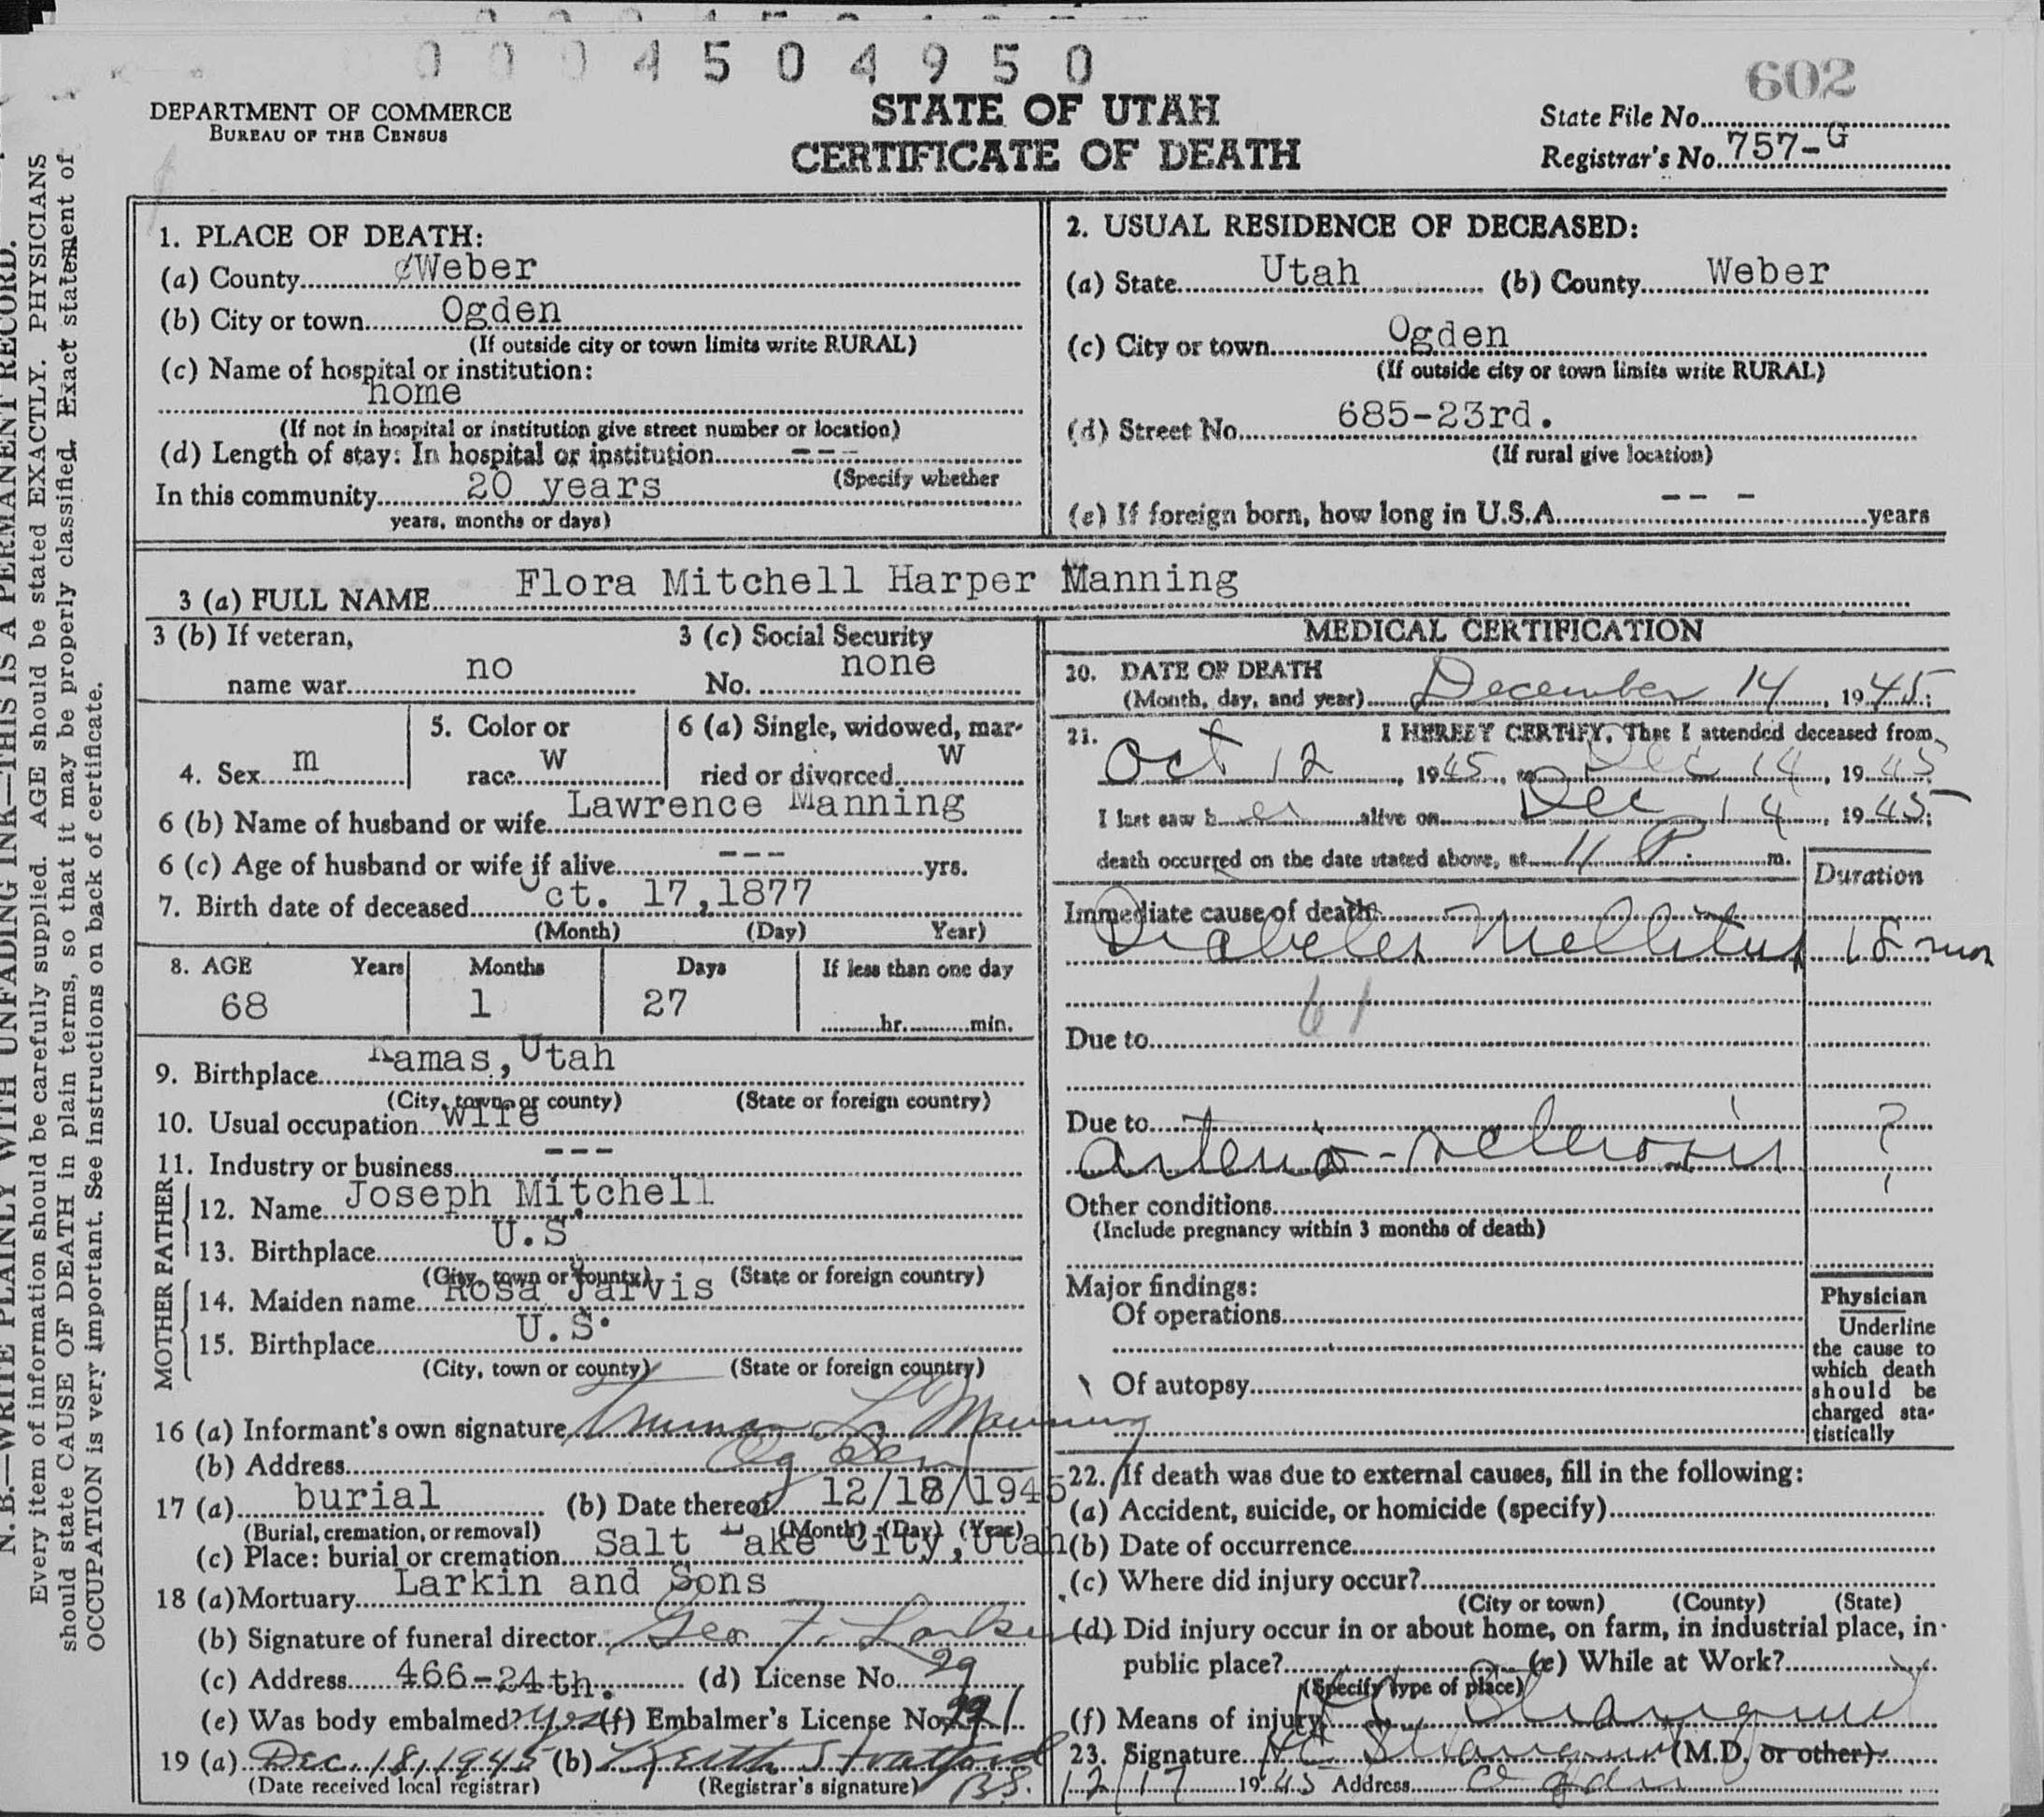 0 0 0 4 5 0 4 9 5 0
602
DEPARTMENT OF COMMERCE
BUREAU OF THE CENSUS
STATE OF UTAH
CERTIFICATE OF DEATH
State File No.
Registrar's No. 757-G
N. B.—WRITE PLAINLY WITH UNFADING INK—THIS IS A PERMANENT RECORD.
Every item of information should be carefully supplied. AGE should be stated EXACTLY. PHYSICIANS
should state CAUSE OF DEATH in plain terms, so that it may be properly classified. Exact statement of
OCCUPATION is very important. See instructions on back of certificate.
1. PLACE OF DEATH:
(a) County Weber
(b) City or town Ogden
(If outside city or town limits write RURAL)
(c) Name of hospital or institution:
home
(If not in hospital or institution give street number or location)
(d) Length of stay: In hospital or institution ---
(Specify whether
In this community 20 years
years, months or days)
2. USUAL RESIDENCE OF DECEASED:
(a) State Utah (b) County Weber
(c) City or town Ogden
(If outside city or town limits write RURAL)
(d) Street No. 685-23rd.
(If rural give location)
(e) If foreign born, how long in U.S.A. -- - years
3 (a) FULL NAME Flora Mitchell Harper Manning
3 (b) If veteran,
name war no
3 (c) Social Security
No. none
4. Sex m
5. Color or
race W
6 (a) Single, widowed, mar-
ried or divorced W
6 (b) Name of husband or wife Lawrence Manning
6 (c) Age of husband or wife if alive --- yrs.
7. Birth date of deceased Oct. 17,1877
(Month) (Day) Year)
8. AGE Years Months Days If less than one day
68 1 27 hr. min.
9. Birthplace Kamas, Utah
(City, town, or county) (State or foreign country)
10. Usual occupation wife
11. Industry or business ---
MOTHER FATHER
12. Name Joseph Mitchell
13. Birthplace U.S
(City, town or county) (State or foreign country)
14. Maiden name Rosa Jarvis
15. Birthplace U.S.
(City, town or county) (State or foreign country)
16 (a) Informant's own signature Truman L Manning
(b) Address Ogden
17 (a) burial (b) Date thereof 12/18/1945
(Burial, cremation, or removal) (Month) (Day) (Year)
(c) Place: burial or cremation Salt Lake City, Utah
18 (a) Mortuary Larkin and Sons
(b) Signature of funeral director Geo F. Larkin
(c) Address 466-24th. (d) License No. 29
(e) Was body embalmed? yes (f) Embalmer's License No.
19 (a) Dec. 18, 1945 (b) Keith Stratford
(Date received local registrar) (Registrar's signature) BS.
MEDICAL CERTIFICATION
20. DATE OF DEATH
(Month, day, and year) December 14, 1945;
21. I HEREBY CERTIFY, That I attended deceased from
Oct 12, 1945, to Dec 14, 1945
I last saw her alive on Dec 14, 1945;
death occurred on the date stated above, at 11 P. m.
Duration
Immediate cause of death
Diabetes Mellitus 18 mos
61
Due to
Due to
arterio-sclerosis ?
Other conditions
(Include pregnancy within 3 months of death)
Major findings:
Of operations
Of autopsy
Physician
Underline
the cause to
which death
should be
charged sta-
tistically
22. If death was due to external causes, fill in the following:
(a) Accident, suicide, or homicide (specify)
(b) Date of occurrence
(c) Where did injury occur?
(City or town) (County) (State)
(d) Did injury occur in or about home, on farm, in industrial place, in
public place? (e) While at Work?
(Specify type of place)
(f) Means of injury
23. Signature (M.D. or other)
12/17 1945 Address Ogden